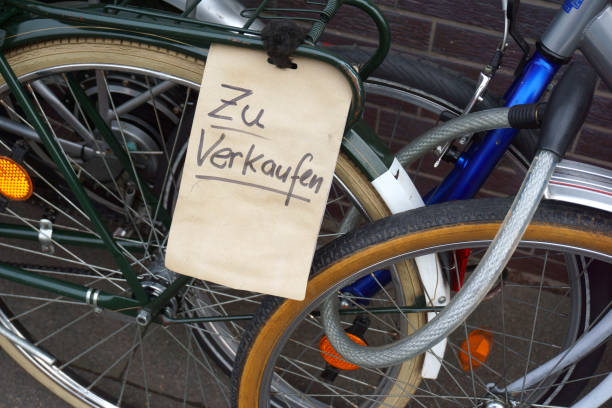 Zu
Verkaufen